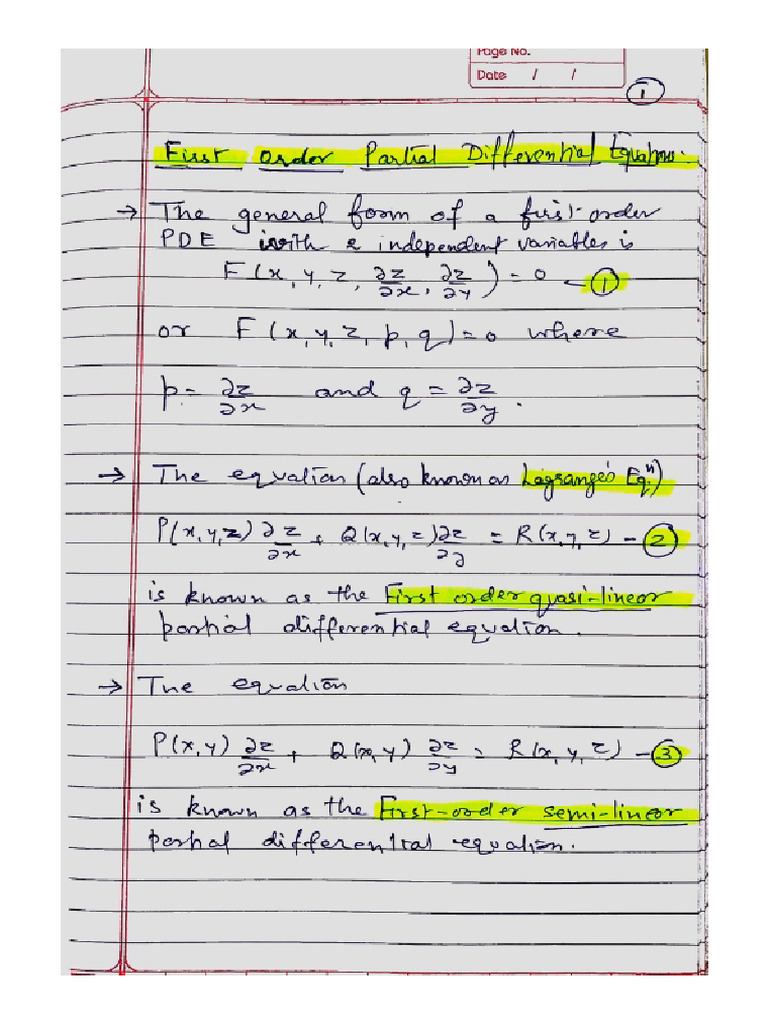 Page No.
Date / /
①
First order Partial Differential Equations.
→ The general form of a first-order
PDE with 2 independent variables is
F(x, y, z, ∂z/∂x, ∂z/∂y) = 0 — ①
or F(x, y, z, p, q) = 0 where
p = ∂z/∂x and q = ∂z/∂y.
→ The equation (also known as Lagrange's Eqⁿ.)
P(x, y, z) ∂z/∂x + Q(x, y, z) ∂z/∂y = R(x, y, z) — ②
is known as the First order quasi-linear
partial differential equation.
→ The equation
P(x, y) ∂z/∂x + Q(x, y) ∂z/∂y = R(x, y, z) — ③
is known as the First-order semi-linear
partial differential equation.